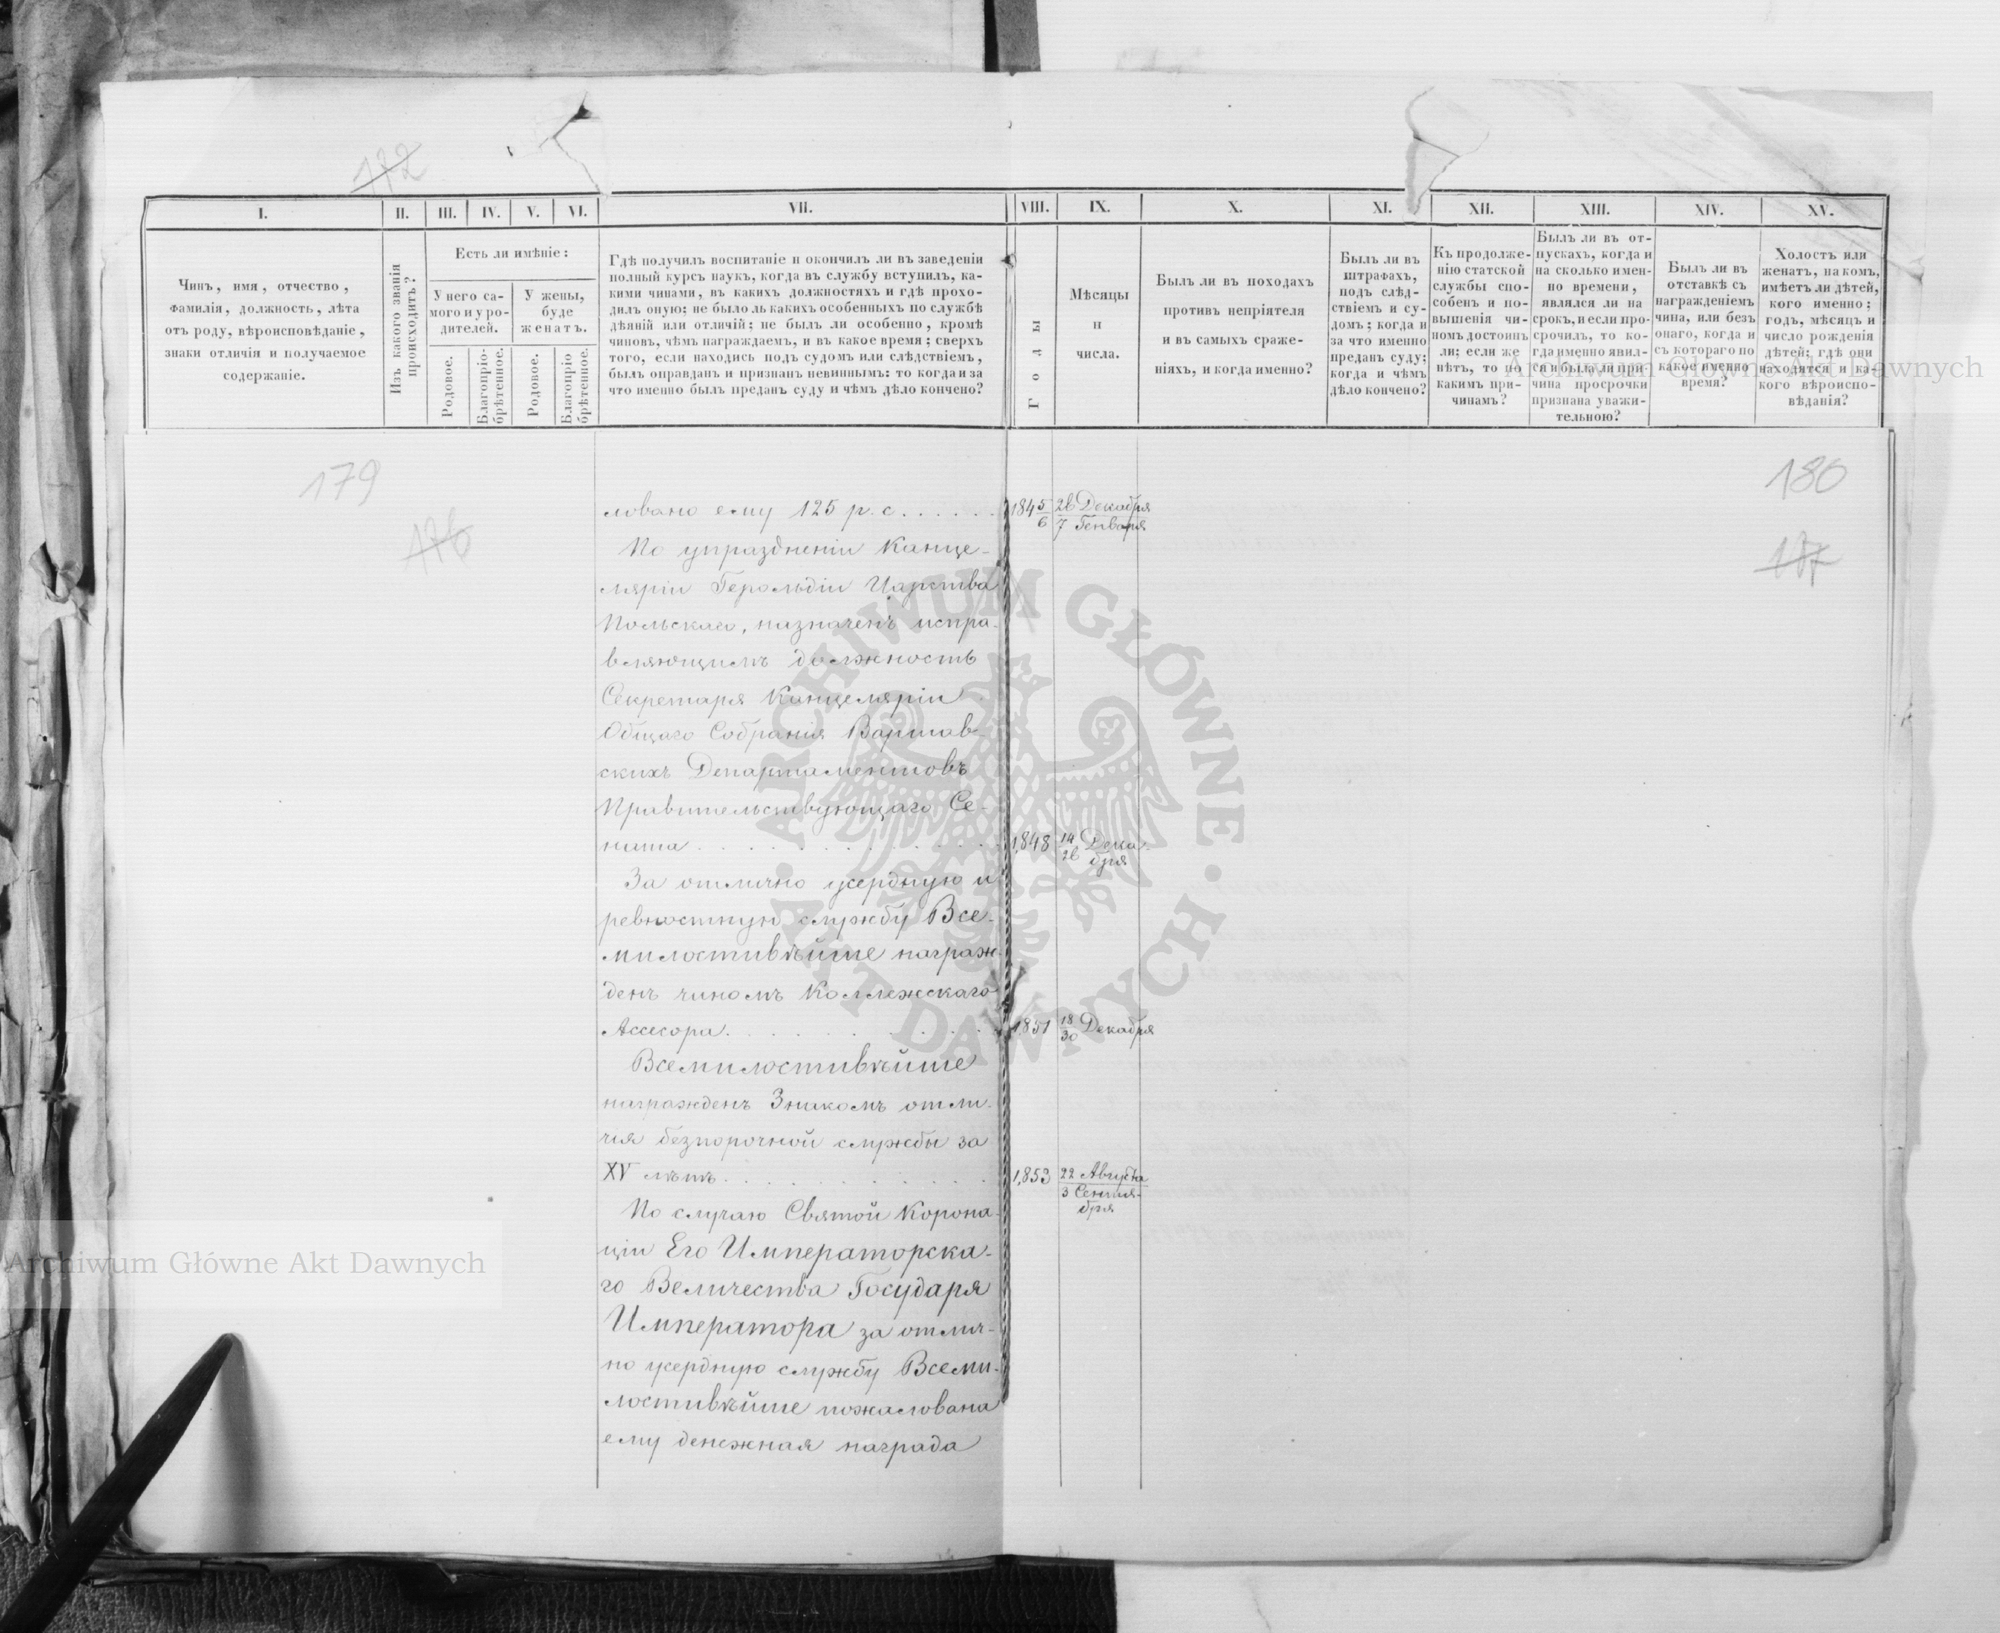 172
I. II. III. IV. V. VI. VII. VIII. IX. X. XI. XII. XIII. XIV. XV.
Чинъ, имя, отчество,
фамилія, должность, лѣта
отъ роду, вѣроисповѣданіе,
знаки отличія и получаемое
содержаніе.
Изъ какого званія
происходитъ?
Есть ли имѣніе:
У него са-
мого и у ро-
дителей.
У жены,
буде
женатъ.
Родовое.
Благопріо-
брѣтенное.
Родовое.
Благопріо
брѣтенное.
Гдѣ получилъ воспитаніе и окончилъ ли въ заведеніи
полный курсъ наукъ, когда въ службу вступилъ, ка-
кими чинами, въ какихъ должностяхъ и гдѣ прохо-
дилъ оную; не было ль какихъ особенныхъ по службѣ
дѣяній или отличій; не былъ ли особенно, кромѣ
чиновъ, чѣмъ награждаемъ, и въ какое время; сверхъ
того, если находись подъ судомъ или слѣдствіемъ,
былъ оправданъ и признанъ невиннымъ: то когда и за
что именно былъ преданъ суду и чѣмъ дѣло кончено?
Годы
Мѣсяцы
и
числа.
Былъ ли въ походахъ
противъ непріятеля
и въ самыхъ сраже-
ніяхъ, и когда именно?
Былъ ли въ
штрафахъ,
подъ слѣд-
ствіемъ и су-
домъ; когда и
за что именно
преданъ суду;
когда и чѣмъ
дѣло кончено?
Къ продолже-
нію статской
службы спо-
собенъ и по-
вышенія чи-
номъ достоинъ
ли; если же
нѣтъ, то по
какимъ при-
чинамъ?
Былъ ли въ от-
пускахъ, когда и
на сколько имен-
но времени,
явился ли на
срокъ, и если про-
срочилъ, то ко-
гда именно явил-
ся и была ли при
чина просрочки
признана уважи-
тельною?
Былъ ли въ
отставкѣ съ
награжденіемъ
чина, или безъ
онаго, когда и
съ котораго по
какое именно
время?
Холостъ или
женатъ, на комъ,
имѣетъ ли дѣтей,
кого именно;
годъ, мѣсяцъ и
число рожденія
дѣтей; гдѣ они
находятся и ка-
кого вѣроиспо-
вѣданія?
179
176
180
177
ловано ему 125 р. с. . . . . . 1845/6 26 Декабря
7 Генваря
По упраздненіи Канце-
ляріи Герольдіи Царства
Польскаго, назначенъ испра-
вляющимъ должность
Секретаря Канцеляріи
Общаго Собранія Варшав-
скихъ Департаментовъ
Правительствующаго Се-
ната . . . . . . . . . . 1848 14/26 Дека-
бря
За отлично усердную и
ревностную службу Все-
милостивѣйше награж-
денъ чиномъ Коллежскаго
Ассесора. . . . . . . . . 1851 18/30 Декабря
Всемилостивѣйше
награжденъ Знакомъ отли-
чія безпорочной службы за
XV лѣтъ. . . . . . . . . 1853 22 Августа
3 Сентя-
бря
По случаю Святой Корона-
ціи Его Императорска-
го Величества Государя
Императора за отлич-
но усердную службу Всеми-
лостивѣйше пожалована
ему денежная награда
ARCHIWUM GŁÓWNE · AKT DAWNYCH ·
Archiwum Główne Akt Dawnych
Archiwum Główne Akt Dawnych